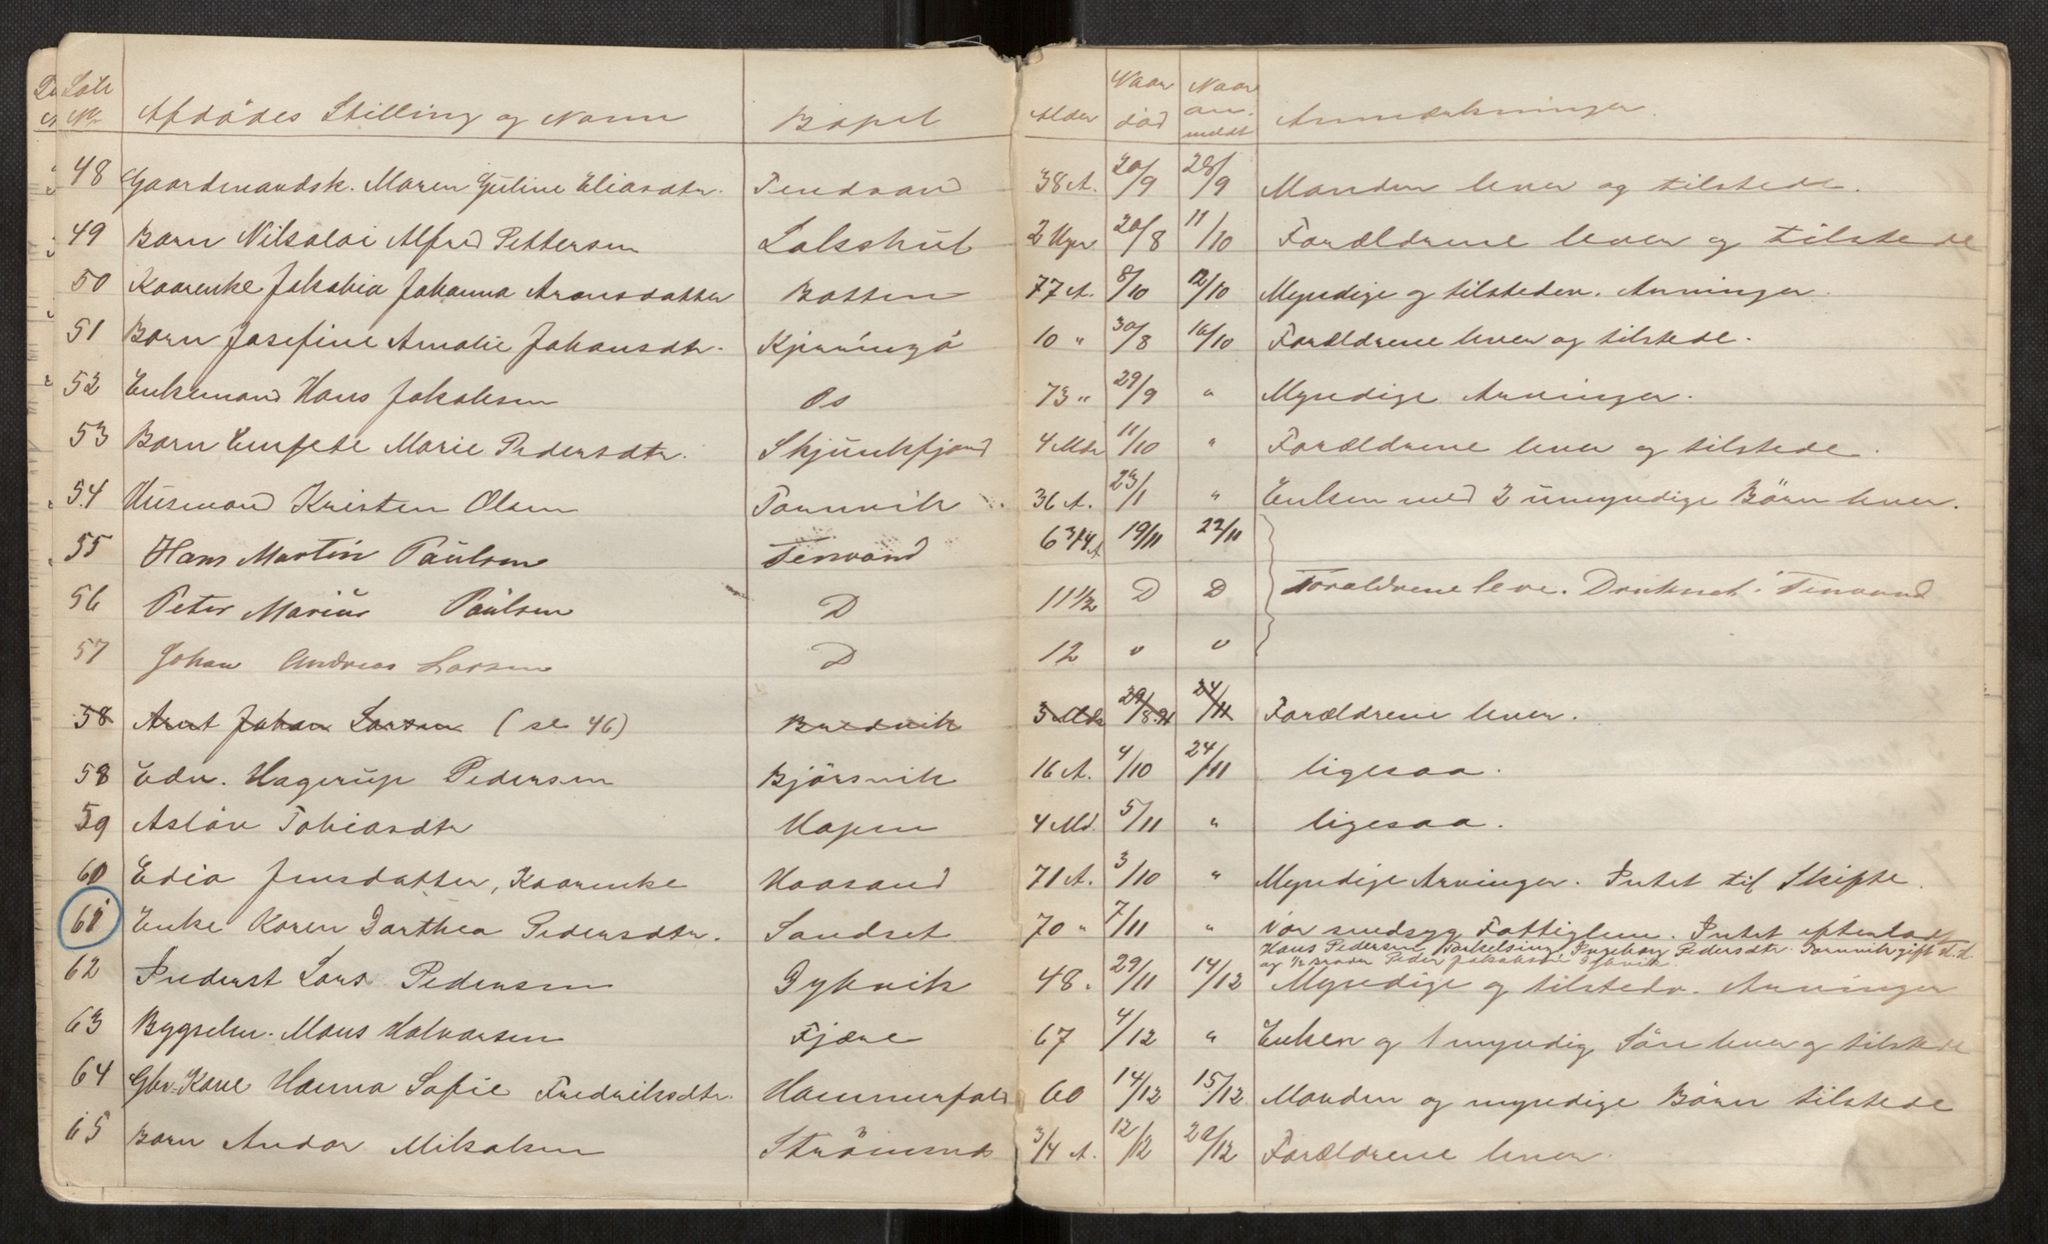 Løb. No. Afdödes Stilling og Navn Bopel Alder Naar död Naar anmeldt Anmærkninger.
48 Gaardmandsk. Maren Guline Eliasdtr. Tendvand 38 A. 20/9 28/9 Manden lever og tilstede.
49 Barn Nikolai Alfred Pettersen Løkshul 2 Uger 20/8 11/10 Forældrene lever og tilstede
50 Kaarenke Jakobia Johanna Aronsdatter Botten 77 A. 8/10 12/10 Myndige og tilstedev. Arvinger.
51 Barn Josefine Amalie Johansdtr. Kjerringö 10 " 30/8 16/10 Forældrene lever og tilstede.
52 Enkemand Hans Jakobsen Os 73 " 29/9 " Myndige Arvinger.
53 Barn Marie Pedersdtr. Skjunkfjord 4 Mdr 11/10 " Forældrene lever og tilstede.
54 Husmand Kristen Olsen Tørnvik 36 A. 23/1 " Enken med 2 umyndige Börn lever.
55 Hans Martin Paulsen Tenvand 6 3/4 A 19/11 22/11
56 Peter Marius Paulsen D 11 1/2 D D Forældrene leve. Druknet i Tenvand
57 Johan Andreas Larsen D 12 " "
58 Arnt Johan Larsen (se 46) Bredvik 3 Mdr 29/8.91 24/11 Forældrene lever.
58 Edv. Hagerup Pedersen Björsvik 16 A. 4/10 24/11 ligesaa.
59 Aslöv Tobiasdtr Hopen 4 Md. 5/11 " ligesaa.
60 Edia Jensdatter, Kaarenke Haasand 71 A. 3/10 " Myndige Arvinger. Intet til Skifte.
61 Enke Karen Dorthea Pedersdtr. Sandset 70 " 7/11 " Var sindsyg Fattiglem. Intet efterladt
Hans Pedersen Torkelseng Ingeborg Pedersdtr. Tørnvik gift
og 1/2 broder Peder Jakobsen
62 Inderst Lars Pedersen Dybvik 48. 29/11 14/12 Myndige og tilstedev. Arvinger
63 Bygselm. Mons Halvorsen Fjære 67 4/12 " Enken og 1 myndig Sön lever og tilstede
64 Gbr. Kone Hanna Sofie Fredriksdtr. Hammerfald 60 14/12 15/12 Manden og myndige Börn tilstede
65 Barn Andor Mikalsen Strömsnes 3/4 A. 12/12 20/12 Forældrene lever.